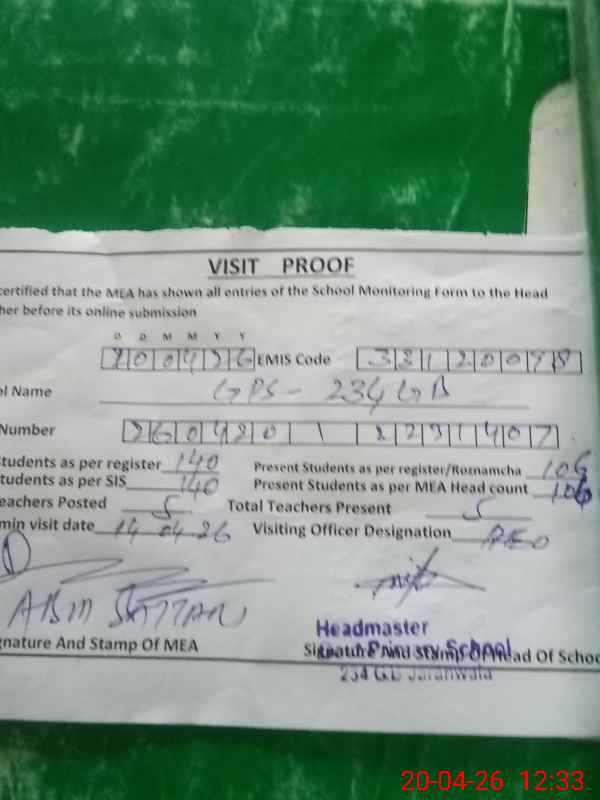 VISIT PROOF
certified that the MEA has shown all entries of the School Monitoring Form to the Head
her before its online submission
D D M M Y Y
200426 EMIS Code 33120098
ol Name GPS - 234 GB
Number 260420 1 2231407
tudents as per register 140 Present Students as per register/Roznamcha 106
tudents as per SIS 140 Present Students as per MEA Head count 106
eachers Posted 5 Total Teachers Present 5
min visit date 14-04-26 Visiting Officer Designation AEO
gnature And Stamp Of MEA
Headmaster
Signature And Stamp Of Head Of Schoo
Primary School
234 G.B Jaranwala
20-04-26 12:33